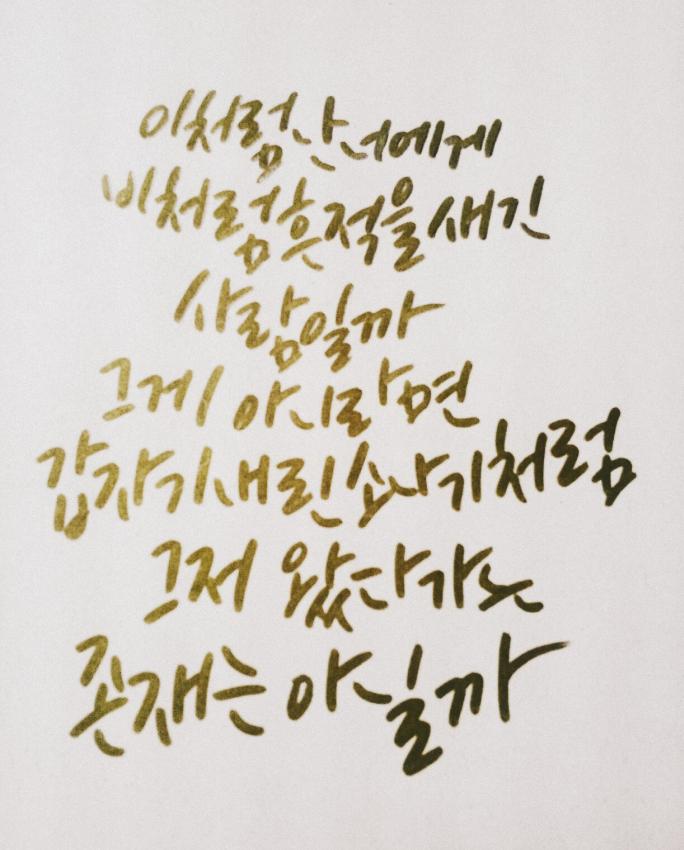 이처럼 난 너에게
비처럼 흔적을 새긴
사람일까
그게 아니라면
갑자기 내린 소나기처럼
그저 왔다가는
존재는 아닐까